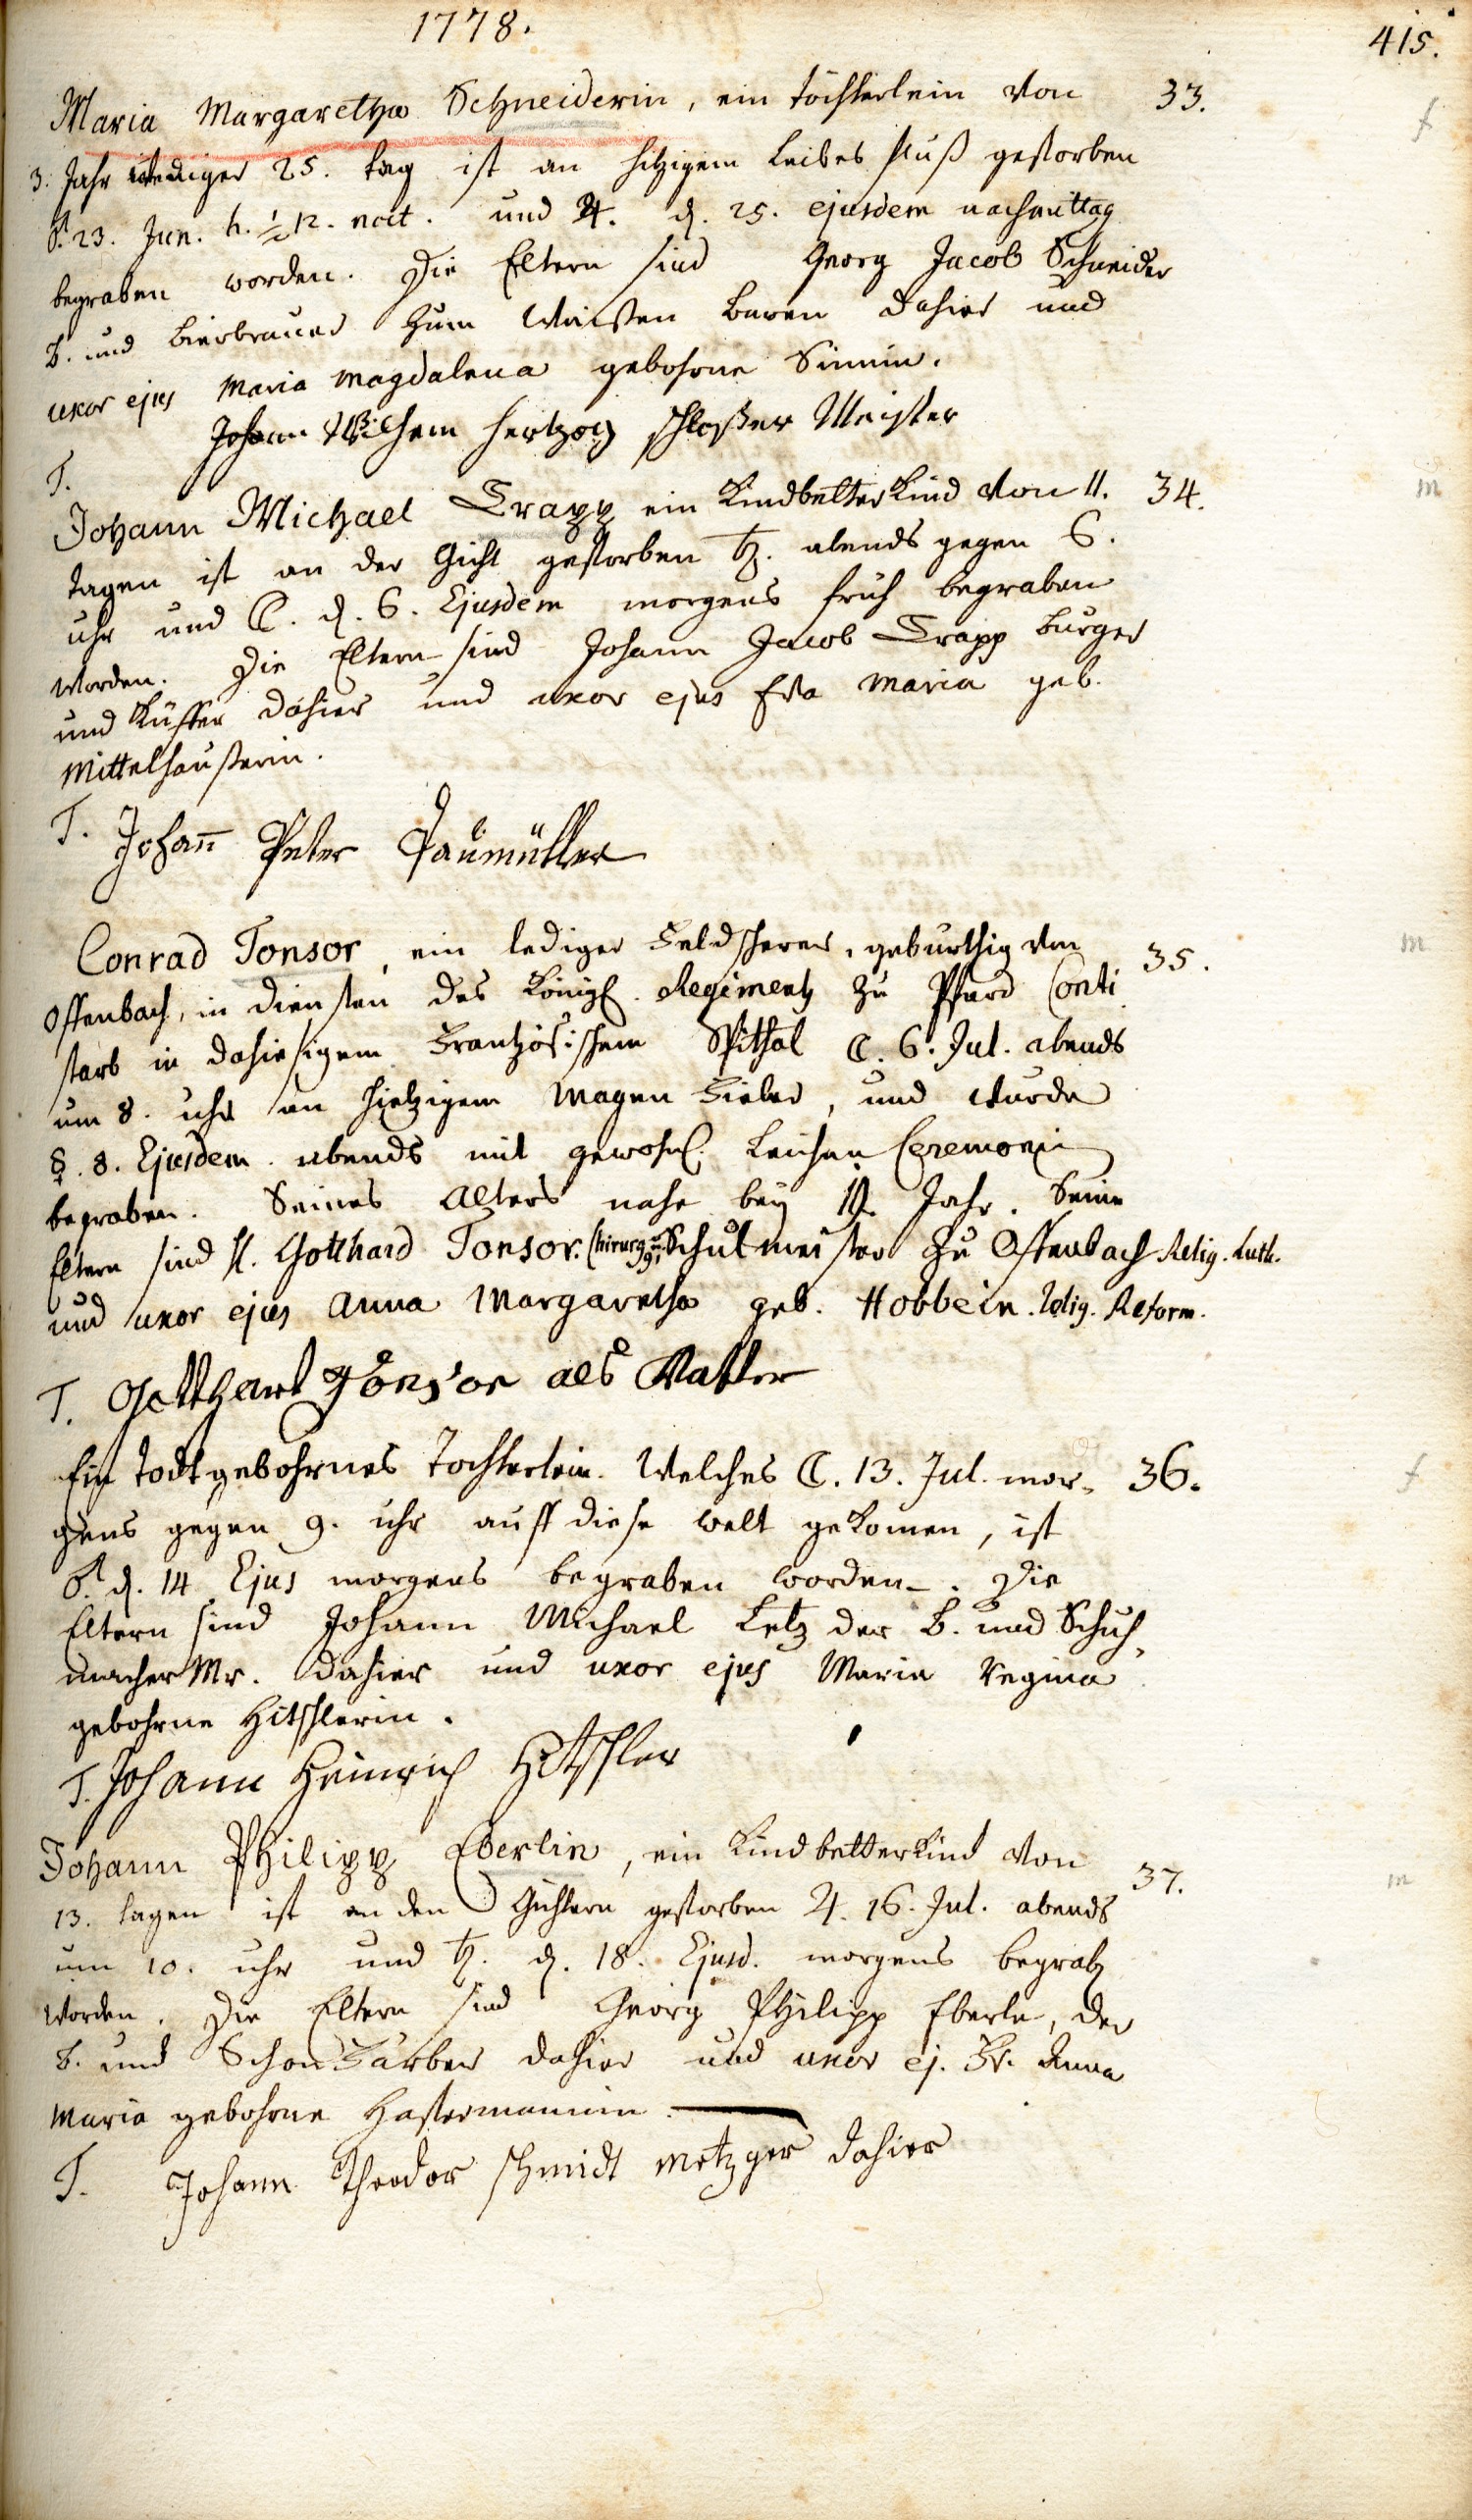 1778.
415.
Maria Margaretha Schneiderin, ein töchterlein von 33.
f
3. Jahr weniger 25. tag ist an hitzigem Leibes fluß gestorben
♂. 23. Jun. h. ½ 12. noct. und ♃. d. 25. ejusdem nachmittag
begraben worden. Die Eltern sind Georg Jacob Schneider
b. und bierbrauer zum Weissen Beren dahier und
uxor ejus Maria Magdalena gebohrne Simin.
Johann Wilhem Hertzog schloßer Meister
T.
Johann Michael Trapp ein Kindbetter Kind von 11. 34.
m
tagen ist an der Gicht gestorben ♄. abends gegen 6.
uhr und ☾. d. 6. Ejusdem morgens früh begraben
worden. Die Eltern sind Johann Jacob Trapp burger
und Küffer dahier und uxor ejus Eva Maria geb.
Mittelhaußerin.
T. Johan̄ Peter Paumüller
Conrad Tonsor, ein lediger Feldscherer, geburthig von 35.
m
Offenbach, in diensten des Königl. Regiments zu Pferd Conti
starb in dahiesigem Frantzösischem Spithal ☾. 6. Jul. abends
um 8. uhr an hietzigem Magen Fieber, und wurde
☿. 8. Ejusdem abends mit gewohnl. Leichen Ceremonie
begraben. Seines Alters nahe bey 19. Jahr. Seine
Eltern sind H. Gotthard Tonsor. Chirurg. u. Schulmeister zu Offenbach Relig. Luth.
und uxor ejus Anna Margaretha geb. Hobbein. Relig. Reform.
T. Gotthart Tonsor als Vatter
Ein todtgebohrnes Töchterlein. Welches ☾. 13. Jul. mor- 36.
f
gens gegen 9. uhr auff diese welt gekomen, ist
♂. d. 14 Ejus morgens begraben worden. Die
Eltern sind Johann Michael Letz der B. und Schuh-
macher Mr. dahier und uxor ejus Maria Regina
gebohrne Hitschlerin.
T. Johann Heinrich Hitschler
Johann Philipp Eberlin, ein Kindbetterkind von 37.
m
13. tagen ist an den Gichtern gestorben ♃. 16. Jul. abends
um 10. uhr und ♄. d. 18. Ejusd. morgens begrab
worden. Die Eltern sind Georg Philipp Eberle, der
b. und Schönfärber dahier und uxor ej. Fr. Anna
Maria gebohrne Hastermannin.
T. Johann Theodor Schmidt Metzger dahier